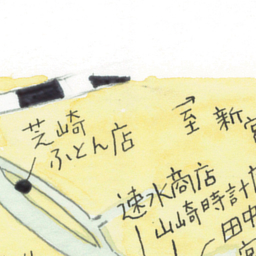 芝崎
ふとん店
→
至新宮
速水商店
山崎時計店
田中
宮